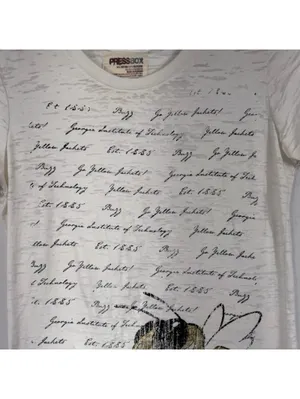 PRESSBOX
Est. 1885 Buzz Go Yellow Jackets!
Georgia Institute of Technology Yellow Jackets
Yellow Jackets Est. 1885 Buzz Go Yellow
Buzz Go Yellow Jackets!
of Technology Yellow Jackets Est. 1885
Go Yellow Jackets! Georgia Institute of
Georgia Institute of Technology Yellow
Yellow Jackets Est. 1885 Buzz Go Yellow Jackets
Buzz Go Yellow Jackets! Georgia Institute
of Technology Yellow Jackets Est. 1885
Go Yellow Jackets! Georgia Institute of Technology
Est. 1885 Buzz Go Yellow Jackets!
Georgia Institute of
Jackets Est. 1885